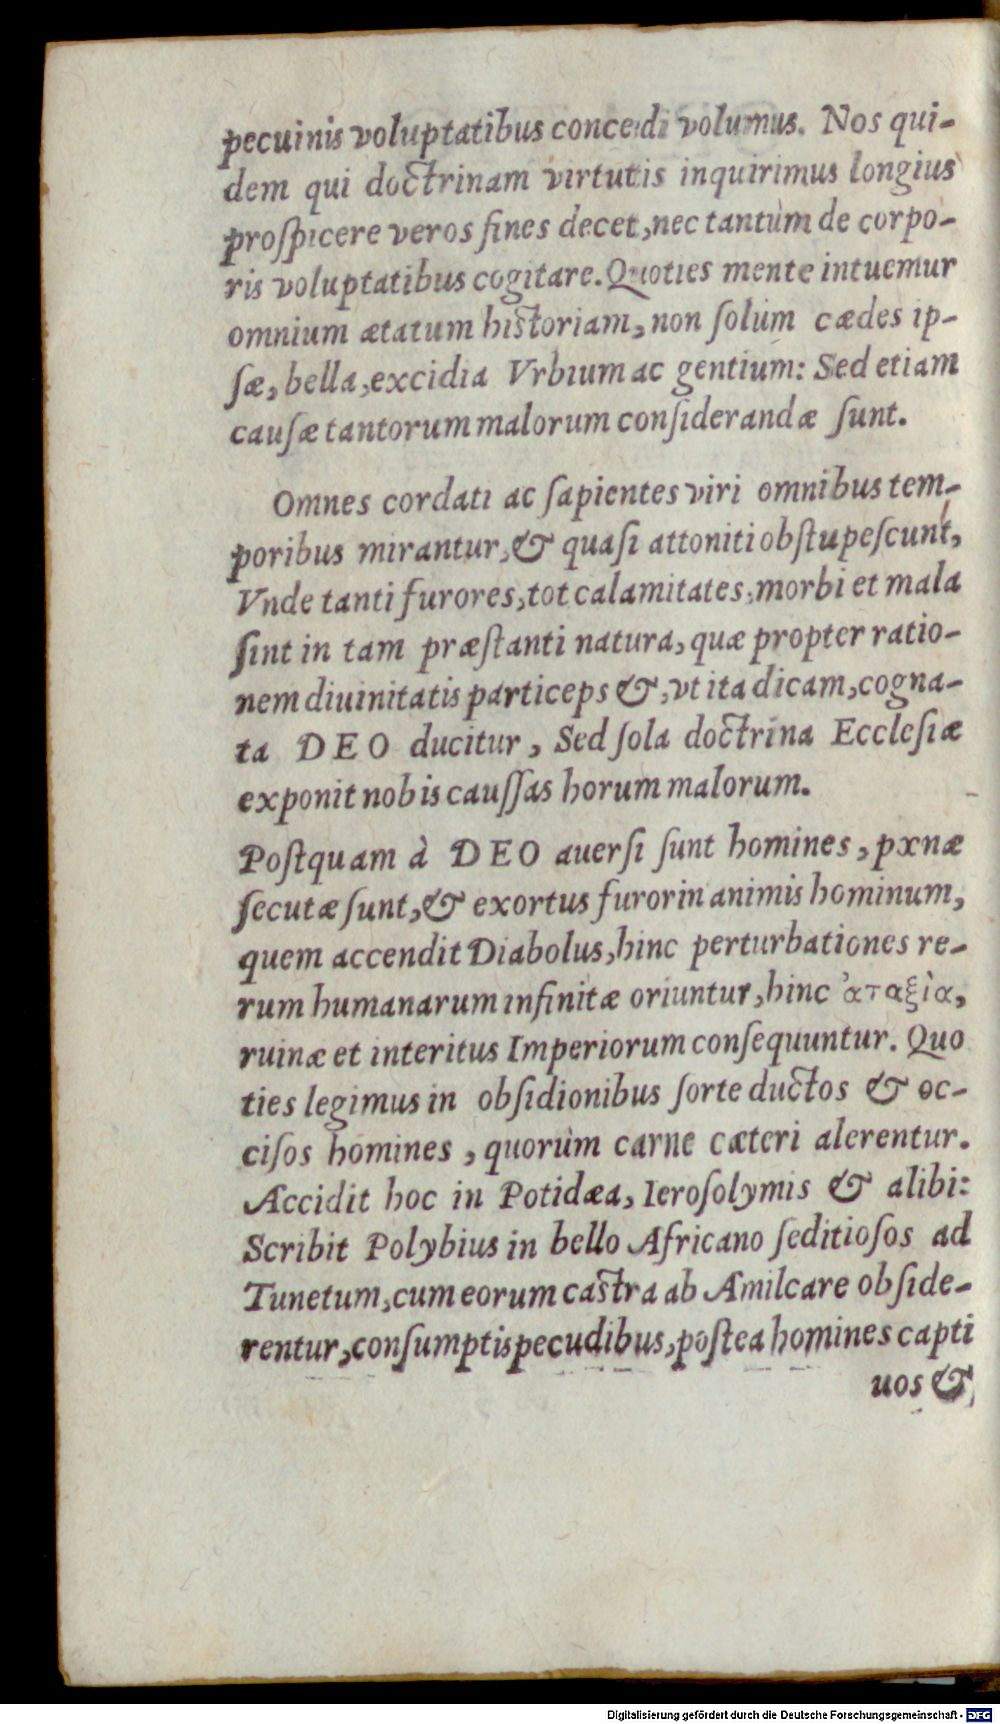 pecuinis voluptatibus concedi volumus. Nos qui-
dem qui doctrinam virtutis inquirimus longius
proſpicere veros fines decet, nec tantùm de corpo-
ris voluptatibus cogitare. Quoties mente intuemur
omnium ætatum hiſtoriam, non ſolùm cædes ip-
ſæ, bella, excidia Vrbium ac gentium: Sed etiam
cauſæ tantorum malorum conſiderandæ ſunt.
Omnes cordati ac ſapientes viri omnibus tem-
poribus mirantur, & quaſi attoniti obſtupeſcunt,
Vnde tanti furores, tot calamitates, morbi et mala
ſint in tam præſtanti natura, quæ propter ratio-
nem diuinitatis particeps &, vt ita dicam, cogna-
ta DEO ducitur, Sed ſola doctrina Eccleſiæ
exponit nobis cauſſas horum malorum.
Poſtquam à DEO auerſi ſunt homines, pxnæ
ſecutæ ſunt, & exortus furor in animis hominum,
quem accendit Diabolus, hinc perturbationes re-
rum humanarum infinitæ oriuntur, hinc ἀταξὶα,
ruinæ et interitus Imperiorum conſequuntur. Quo
ties legimus in obſidionibus ſorte ductos & oc-
ciſos homines, quorùm carne cæteri alerentur.
Accidit hoc in Potidæa, Ieroſolymis & alibi:
Scribit Polybius in bello Africano ſeditioſos ad
Tunetum, cum eorum caſtra ab Amilcare obſide-
rentur, conſumptis pecudibus, poſtea homines capti
uos &
Digitalisierung gefördert durch die Deutsche Forschungsgemeinschaft - DFG